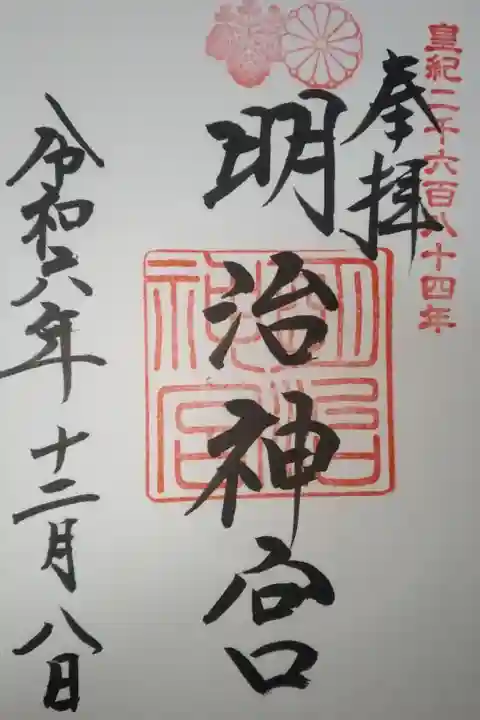 皇紀二千六百八十四年
奉拝
明治神宮
明治神宮
令和六年十二月八日